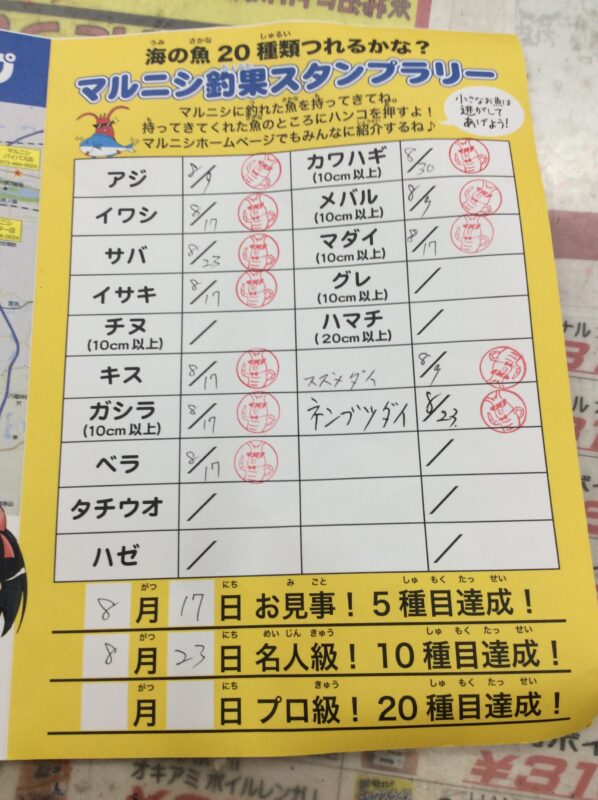 海の魚20種類つれるかな?
マルニシ釣果スタンプラリー
マルニシに釣れた魚を持ってきてね。
持ってきてくれた魚のところにハンコを押すよ!
マルニシホームページでもみんなに紹介するね♪
小さなお魚は
逃がして
あげよう!
アジ 8/9 カワハギ (10cm以上) 8/30
イワシ 8/17 メバル (10cm以上) 8/9
サバ 8/23 マダイ (10cm以上) 8/17
イサキ 8/17 グレ (10cm以上) /
チヌ (10cm以上) / ハマチ (20cm以上) /
キス 8/17 スズメダイ 8/9
ガシラ (10cm以上) 8/17 ネンブツダイ 8/23
ベラ 8/17 /
タチウオ / /
ハゼ / /
8月17日 お見事! 5種目達成!
8月23日 名人級! 10種目達成!
月 日 プロ級! 20種目達成!
オキアミ ボイルレンガ!